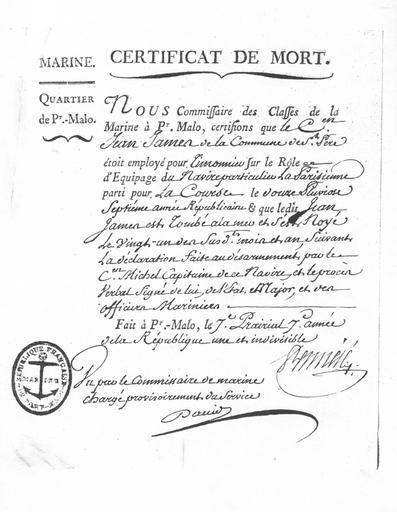 MARINE.
CERTIFICAT DE MORT.
QUARTIER
de Pt.-Malo.
NOUS Commissaire des Classes de la
Marine à Pt. Malo, certifions que le C.en
Jean James de la Commune de St. Père
étoit employé pour Timonnier sur le Rôle
d'Equipage du Navire particulier La Parisienne
parti pour La Course le douze Pluviose
Septième année Républicaine & que ledit Jean
James est Tombé a la mer et s'est Noyé
Le Vingt-un des susdts. mois et an, suivant
La déclaration faite au désarmement, par le
C.en Michel Capitaine de ce Navire, et le procès
Verbal Signé de lui, de l'Etat, et Major, et des
officiers Mariniers
Fait à Pt.-Malo, le 7.e Prairial 7.e année
de la République une et indivisible
REPUBLIQUE FRANÇAISE
MARINE
Vu par le Commissaire de marine
chargé provisoirement du Service
David